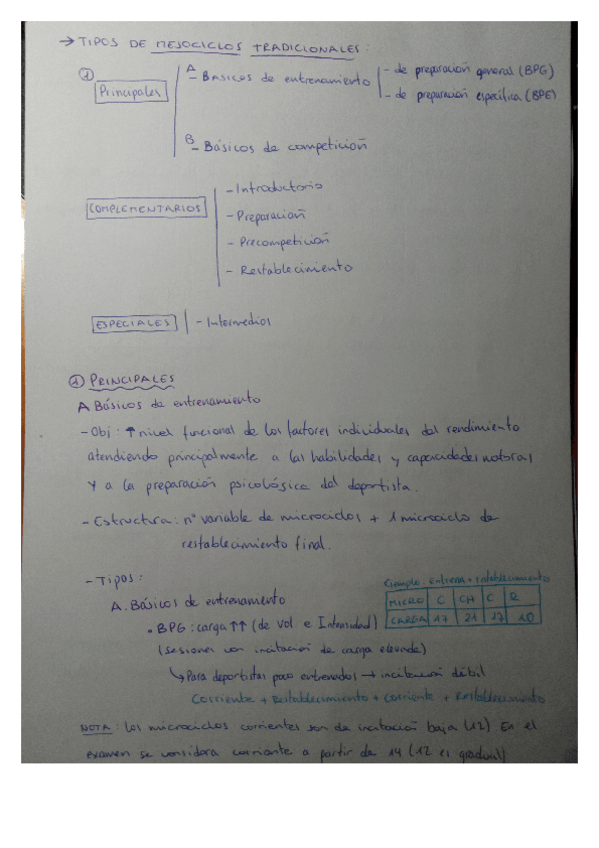 → TIPOS DE MESOCICLOS TRADICIONALES:
① Principales
A - Básicos de entrenamiento
- de preparación general (BPG)
- de preparación específica (BPE)
B - Básicos de competición
COMPLEMENTARIOS
- Introductorio
- Preparación
- Precompetición
- Restablecimiento
ESPECIALES - Intermedios
① PRINCIPALES
A Básicos de entrenamiento
- Obj: ↑ nivel funcional de los factores individuales del rendimiento
atendiendo principalmente a las habilidades y capacidades motoras
y a la preparación psicológica del deportista.
- Estructura: nº variable de microciclos + 1 microciclo de
restablecimiento final.
- Tipos:
Ejemplo: entrena + restablecimiento
A. Básicos de entrenamiento
MICRO C CH C R
CARGA 17 21 17 10
• BPG: carga ↑↑ (de vol e Intensidad)
(sesiones con incitación de carga elevada)
↳ Para deportistas poco entrenados → incitación débil
Corriente + Restablecimiento + Corriente + Restablecimiento
NOTA: Los microciclos corrientes son de incitación baja (12) En el
examen se considera corriente a partir de 14 (12 es gradual)